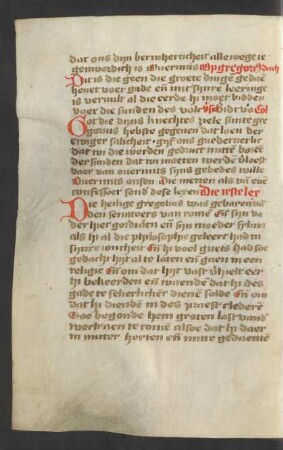 dat ons dijn bermherticheit allewege te
genwordich is Ouermits Op gregor9 dach
Dit is die geen die groete dinge gedae
heuet voer gade en mit sijnre leeringe
is veruult al die eerde hi moet bidden
voer die sunden des volcs Bidt vo Col
God die dijns knechtes ziele sunte gre
gorius hebste gegeuen dat loen der
ewiger salicheit gif ons guedertierler
dat wi die werden gedruct mitter boerde
der sunden dat wi moeten werde verloest
daer van ouermits sijns gebedes wille
Ouermits onsen Die metten als van enen
confessoer sond dese lexen Die irste lex
Die heilige gregorius was gebaren van
den senatoers van rome En sijn va
der hiet gordiaen en sijn moeder siluia
als hi al die philosophie geleert had in
sijnre ioncheit En hi voel guets had soe
gedacht hijt al te laten en gaen in een
religie En om dat hijt vast vertrects eer
hi bekeerden en waende dat hi des
gade te sekerlicher diene solde En om
dat hi diende in des paesschs cledere
Soe begonde hem groten last vander
werlt aen te comen alsoe dat hi daer
in mitter herten en mitte gedaente